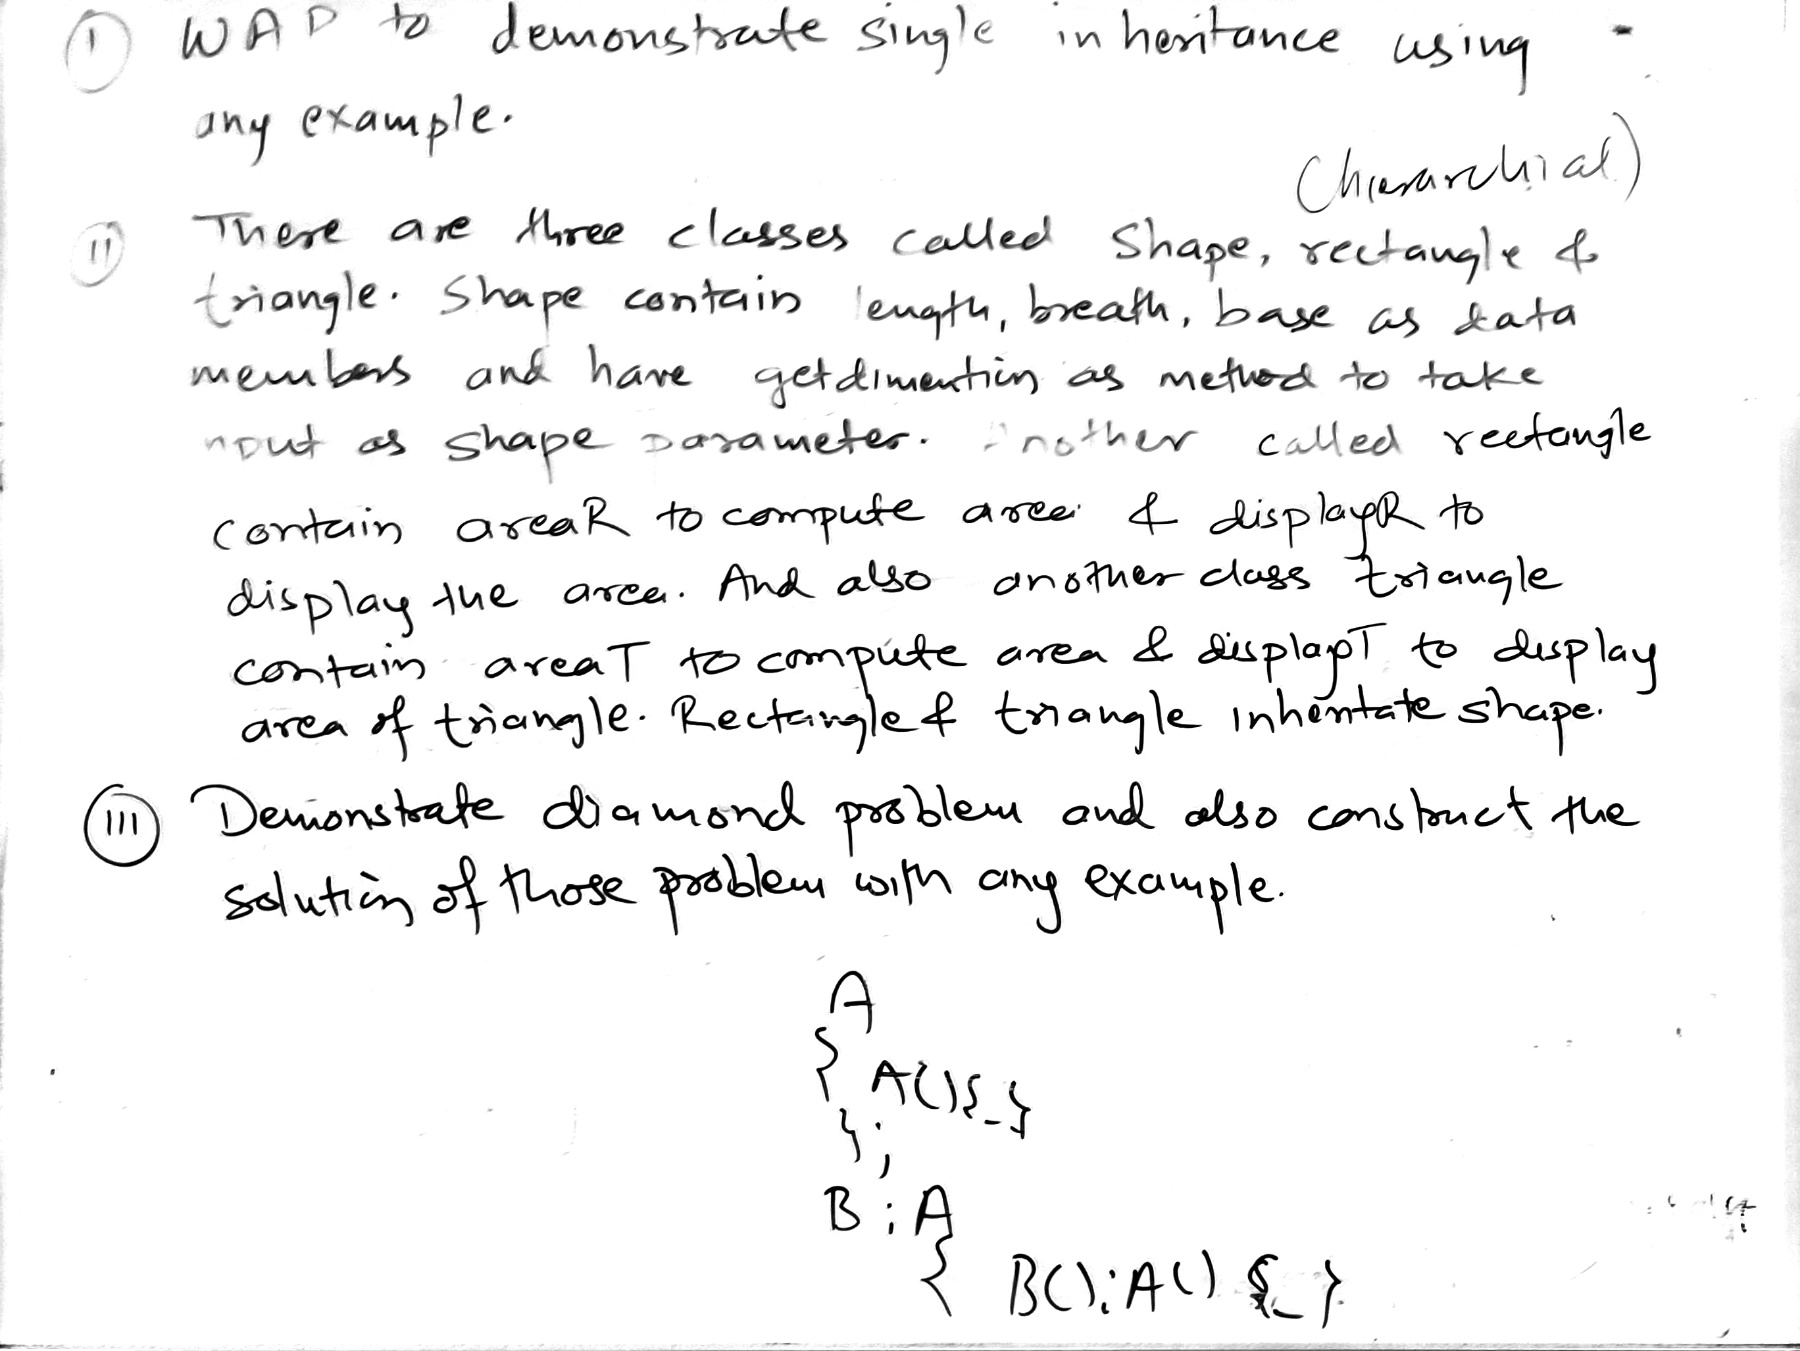 I WAP to demonstrate single inheritance using
any example.
(hierarchial)
II There are three classes called Shape, rectangle &
triangle. Shape contain length, breath, base as data
members and have getdimention as method to take
input as shape parameter. Another called rectangle
contain areaR to compute area & displayR to
display the area. And also another class triangle
contain areaT to compute area & displayT to display
area of triangle. Rectangle & triangle inheritate shape.
III Demonstrate diamond problem and also construct the
solution of those problem with any example.
A
{
A(){_}
};
B : A
{ B():A() {_}